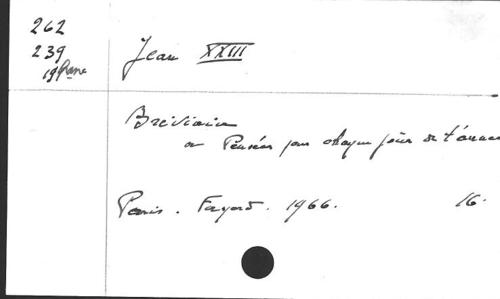 262
239
19
Jean XXIII
Bréviaire
ou Pensées pour chaque jour de l'année
Paris. Fayard. 1966. 16.